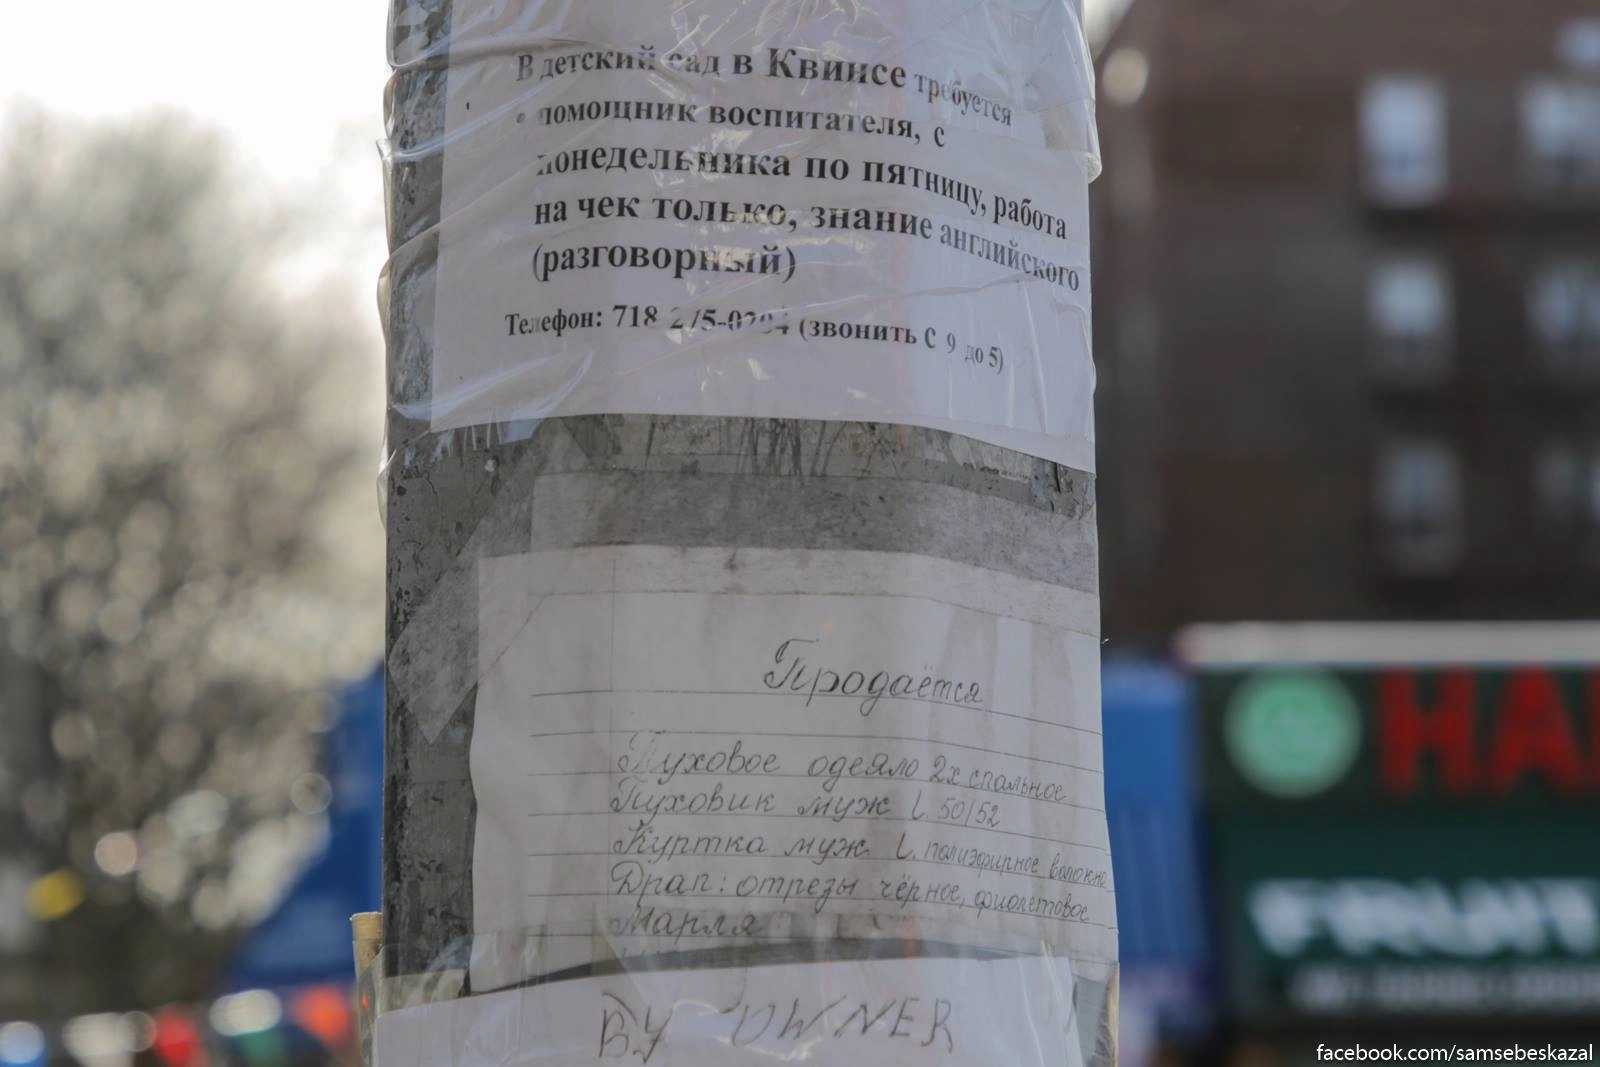 В детский сад в Квинсе требуется
• помощник воспитателя, с
понедельника по пятницу, работа
на чек только, знание английского
(разговорный)
Телефон: 718 (звонить С 9 до 5)
Продаётся
Пуховое одеяло 2х спальное
Пуховик муж L. 50/52
Куртка муж L. полиэфирное волокно
Драп: отрезы чёрное, фиолетовое
Марля
BY OWNER
HA
FRUIT
facebook.com/samsebeskazal